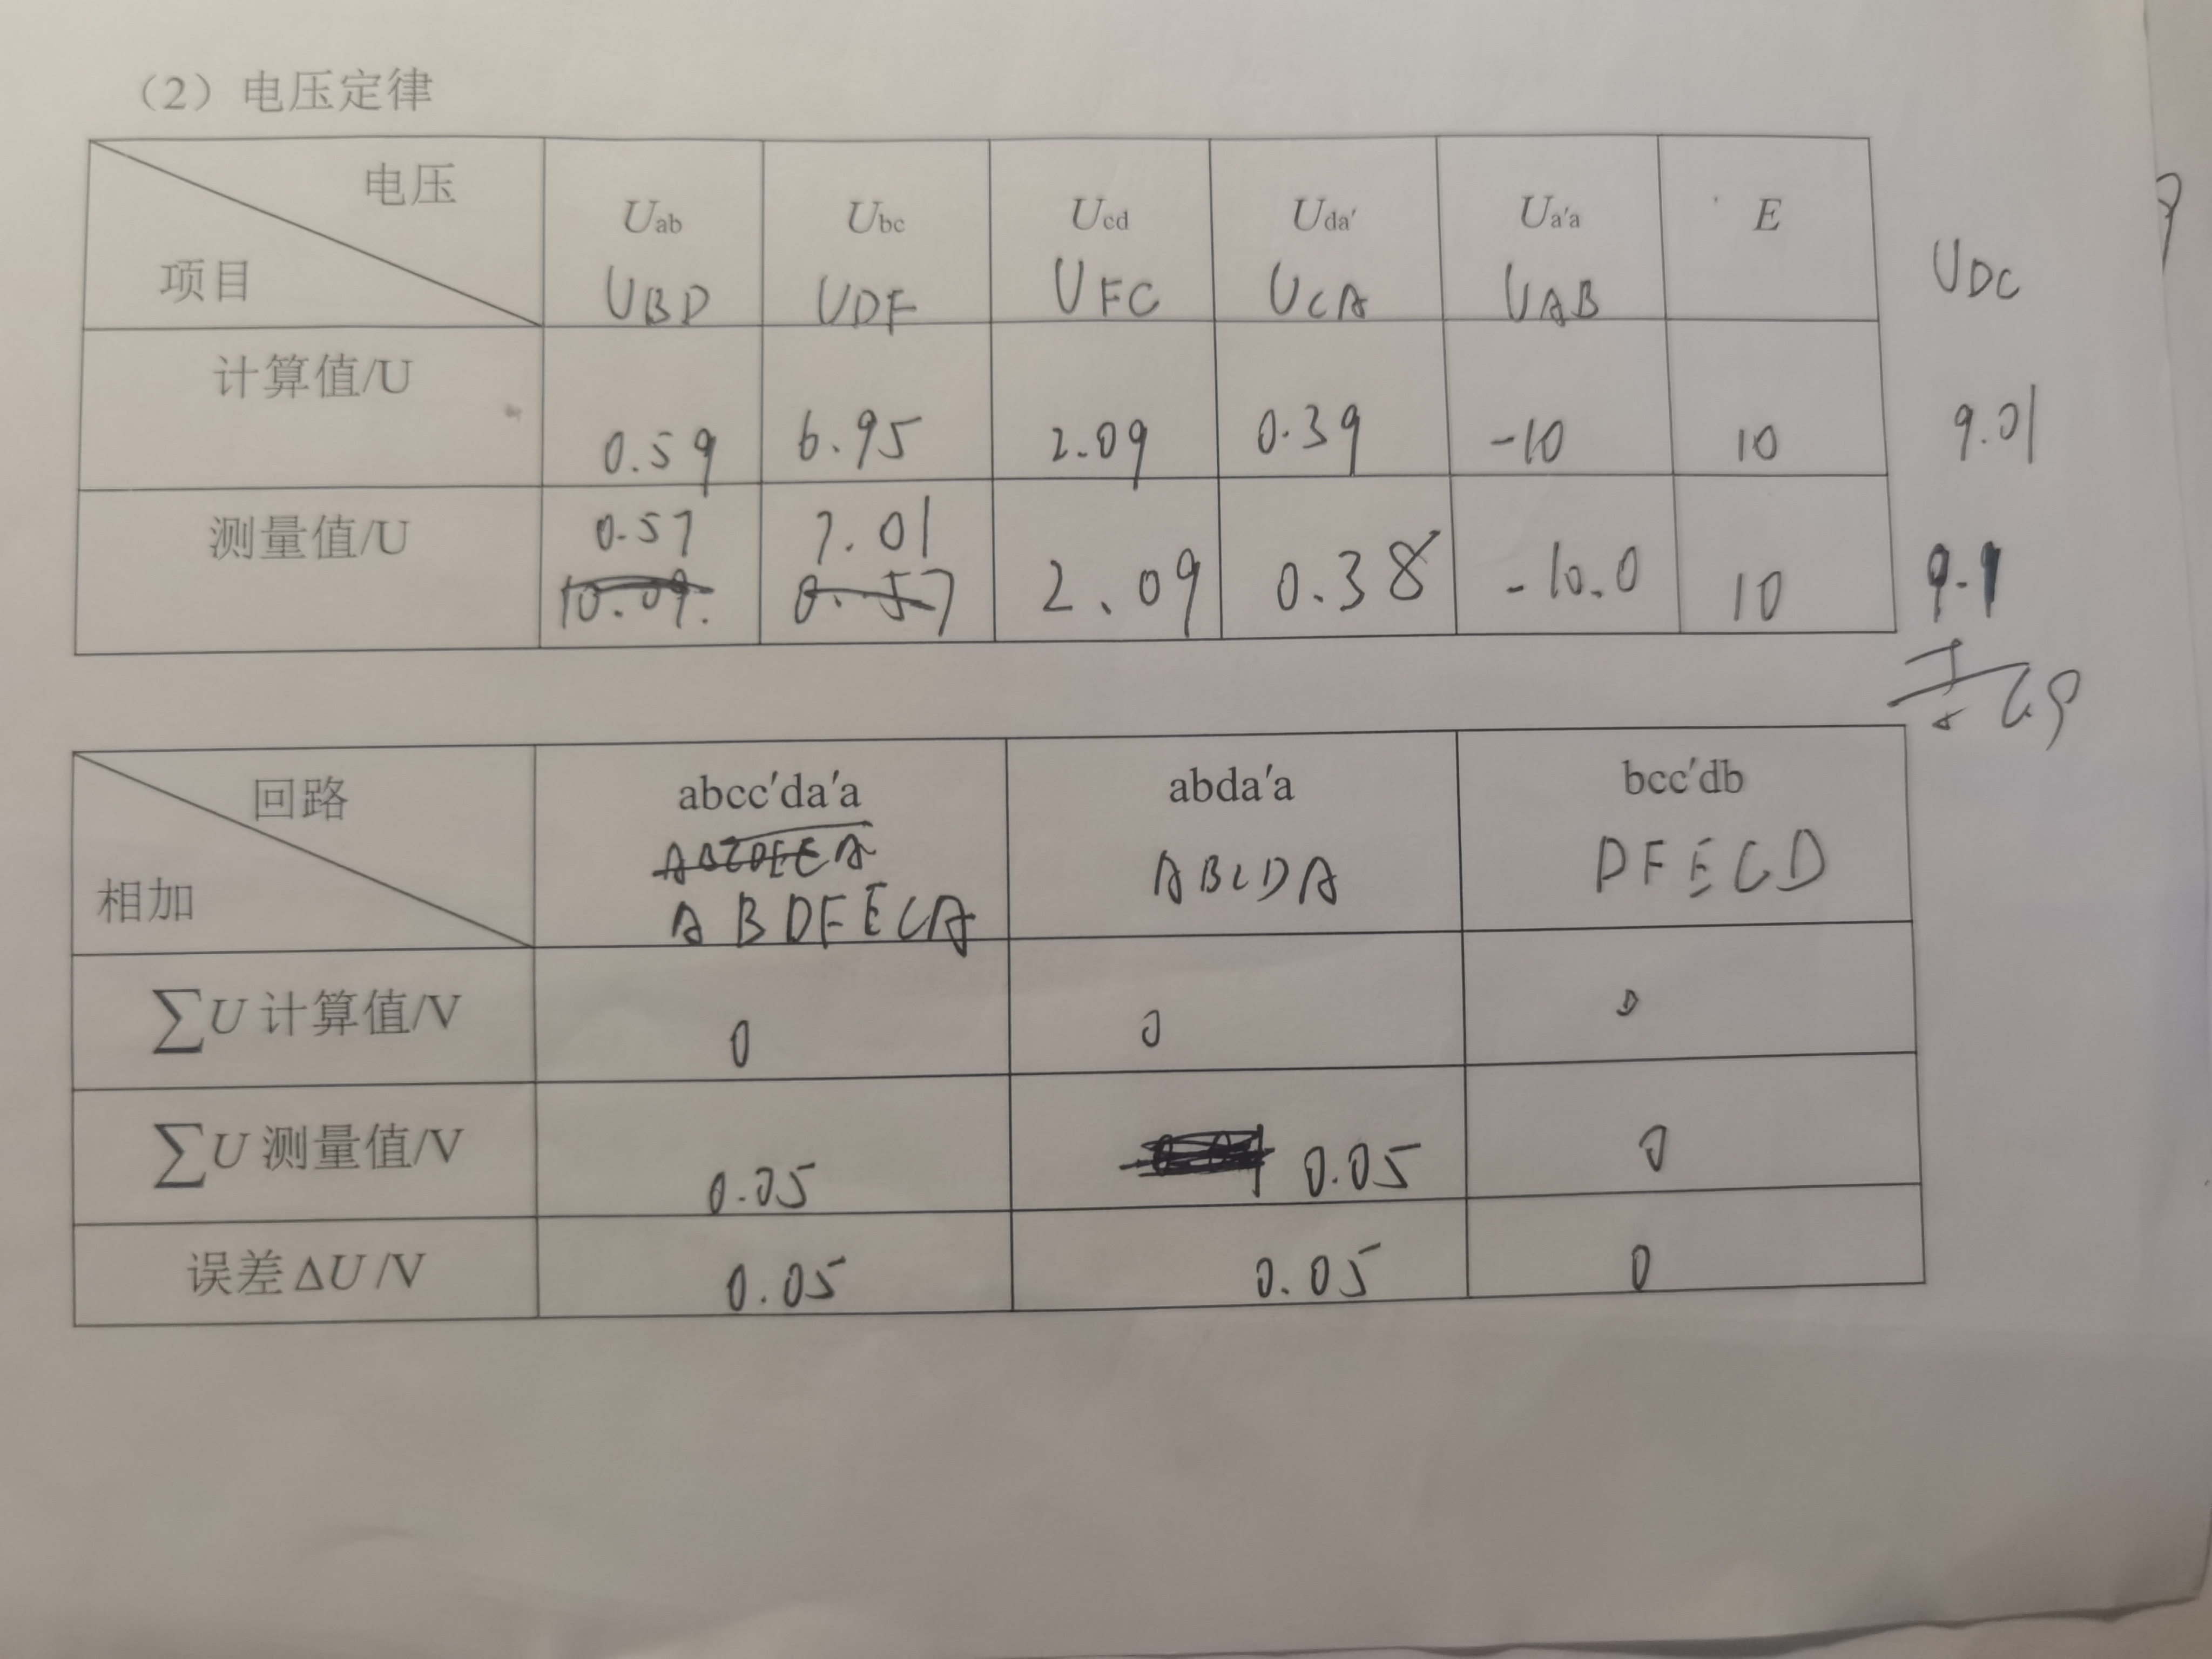 （2）电压定律
电压
项目
Uab
Ubc
Ucd
Uda′
Ua′a
E
UBD
UDF
UFC
UCA
UAB
UDC
计算值/U
0.59
6.95
2.09
0.39
-10
10
9.01
测量值/U
0.57
7.01
10.09.
0.57
2.09
0.38
-10.0
10
9.1
回路
相加
abcc′da′a
abda′a
bcc′db
ABDFECA
ABCDA
DFECD
∑U 计算值/V
0
0
0
∑U 测量值/V
0.05
0.05
0
误差 ΔU /V
0.05
0.05
0